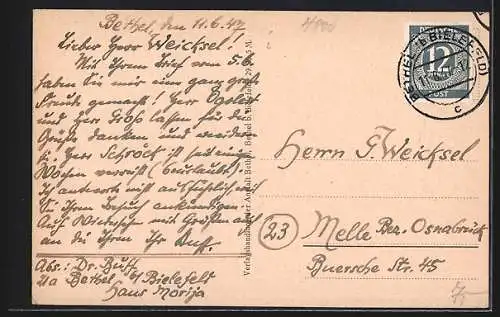 Bethel, den 11.6.47
Lieber Herr Weicksel!
Mit Ihrem Brief vom 5.6.
haben Sie mir eine ganz große
Freude gemacht! Herr
und Herr Groß lassen für die
Grüße danken und erwidern
sie. Herr Schröck ist seit einigen
Wochen verreist (beurlaubt).
Ich antworte nicht ausführlich, weil
Sie Ihren Besuch ankündigen.
Auf Wiedersehn mit Grüßen auch
an die Ihren Ihr
Abs.: Dr.
21a Bethel b/ Bielefeld
Haus Morija
Verlagshandlung der Anstalt Bethel, Bethel b. Bielefeld
12
POST
BETHEL (b. BIELEFELD)
c
Herrn F. Weicksel
(23) Melle Bez. Osnabrück
Buersche Str. 45